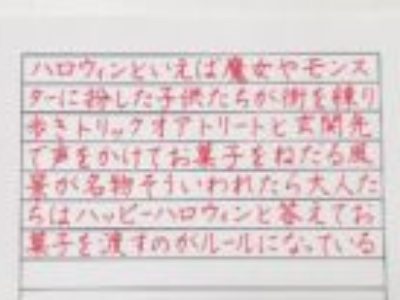 ハロウィンといえば魔女やモンス
ターに扮した子供たちが街を練り
歩きトリックオアトリートと玄関先
で声をかけてお菓子をねだる風
景が名物そういわれたら大人た
ちはハッピーハロウィンと答えてお
菓子を渡すのがルールになっている